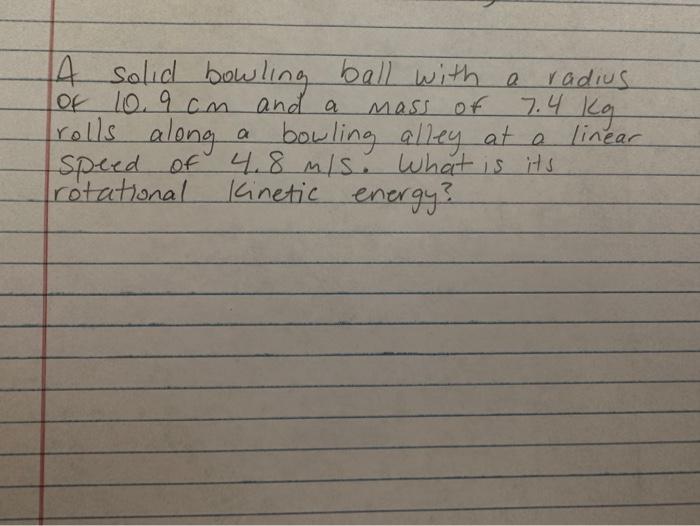 A solid bowling ball with a radius
of 10.9 cm and a mass of 7.4 kg
rolls along a bowling alley at a linear
speed of 4.8 m/s. What is its
rotational kinetic energy?